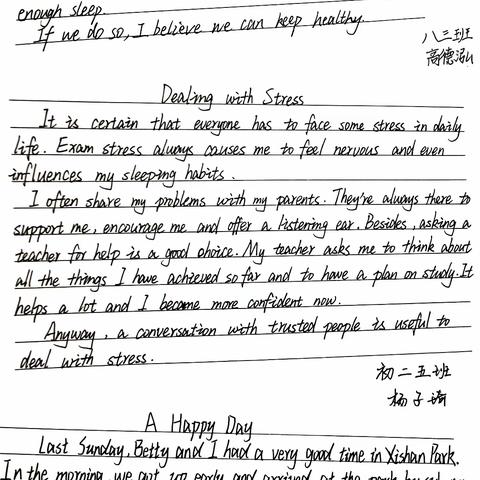 enough sleep.
If we do so, I believe we can keep healthy.
八三班
高德泓
Dealing with Stress
It is certain that everyone has to face some stress in daily
life. Exam stress always causes me to feel nervous and even
influences my sleeping habits.
I often share my problems with my parents. They're always there to
support me, encourage me and offer a listening ear. Besides, asking a
teacher for help is a good choice. My teacher asks me to think about
all the things I have achieved so far and to have a plan on study. It
helps a lot and I became more confident now.
Anyway, a conversation with trusted people is useful to
deal with stress.
初二五班
杨子琦
A Happy Day
Last Sunday, Betty and I had a very good time in Xishan Park.
In the morning, we got up early and arrived at the park